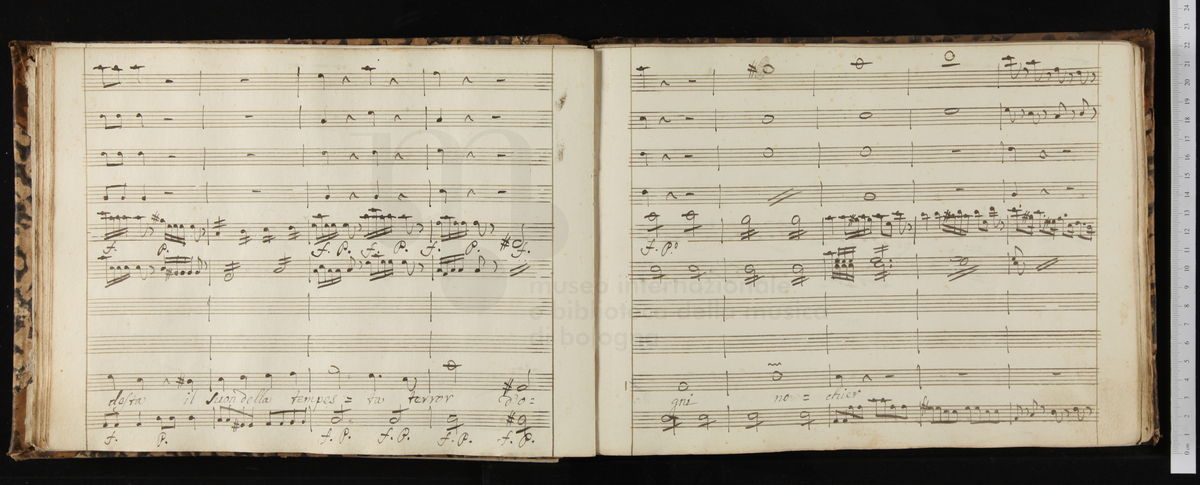 f. P. f. P. f. P. f. P. f.
desta il suon della tempes = ta terror
f. P. f. P. f. P. f. P. f. P.
f. Po
gni no = chier
museo internazionale
e biblioteca della musica
di bologna